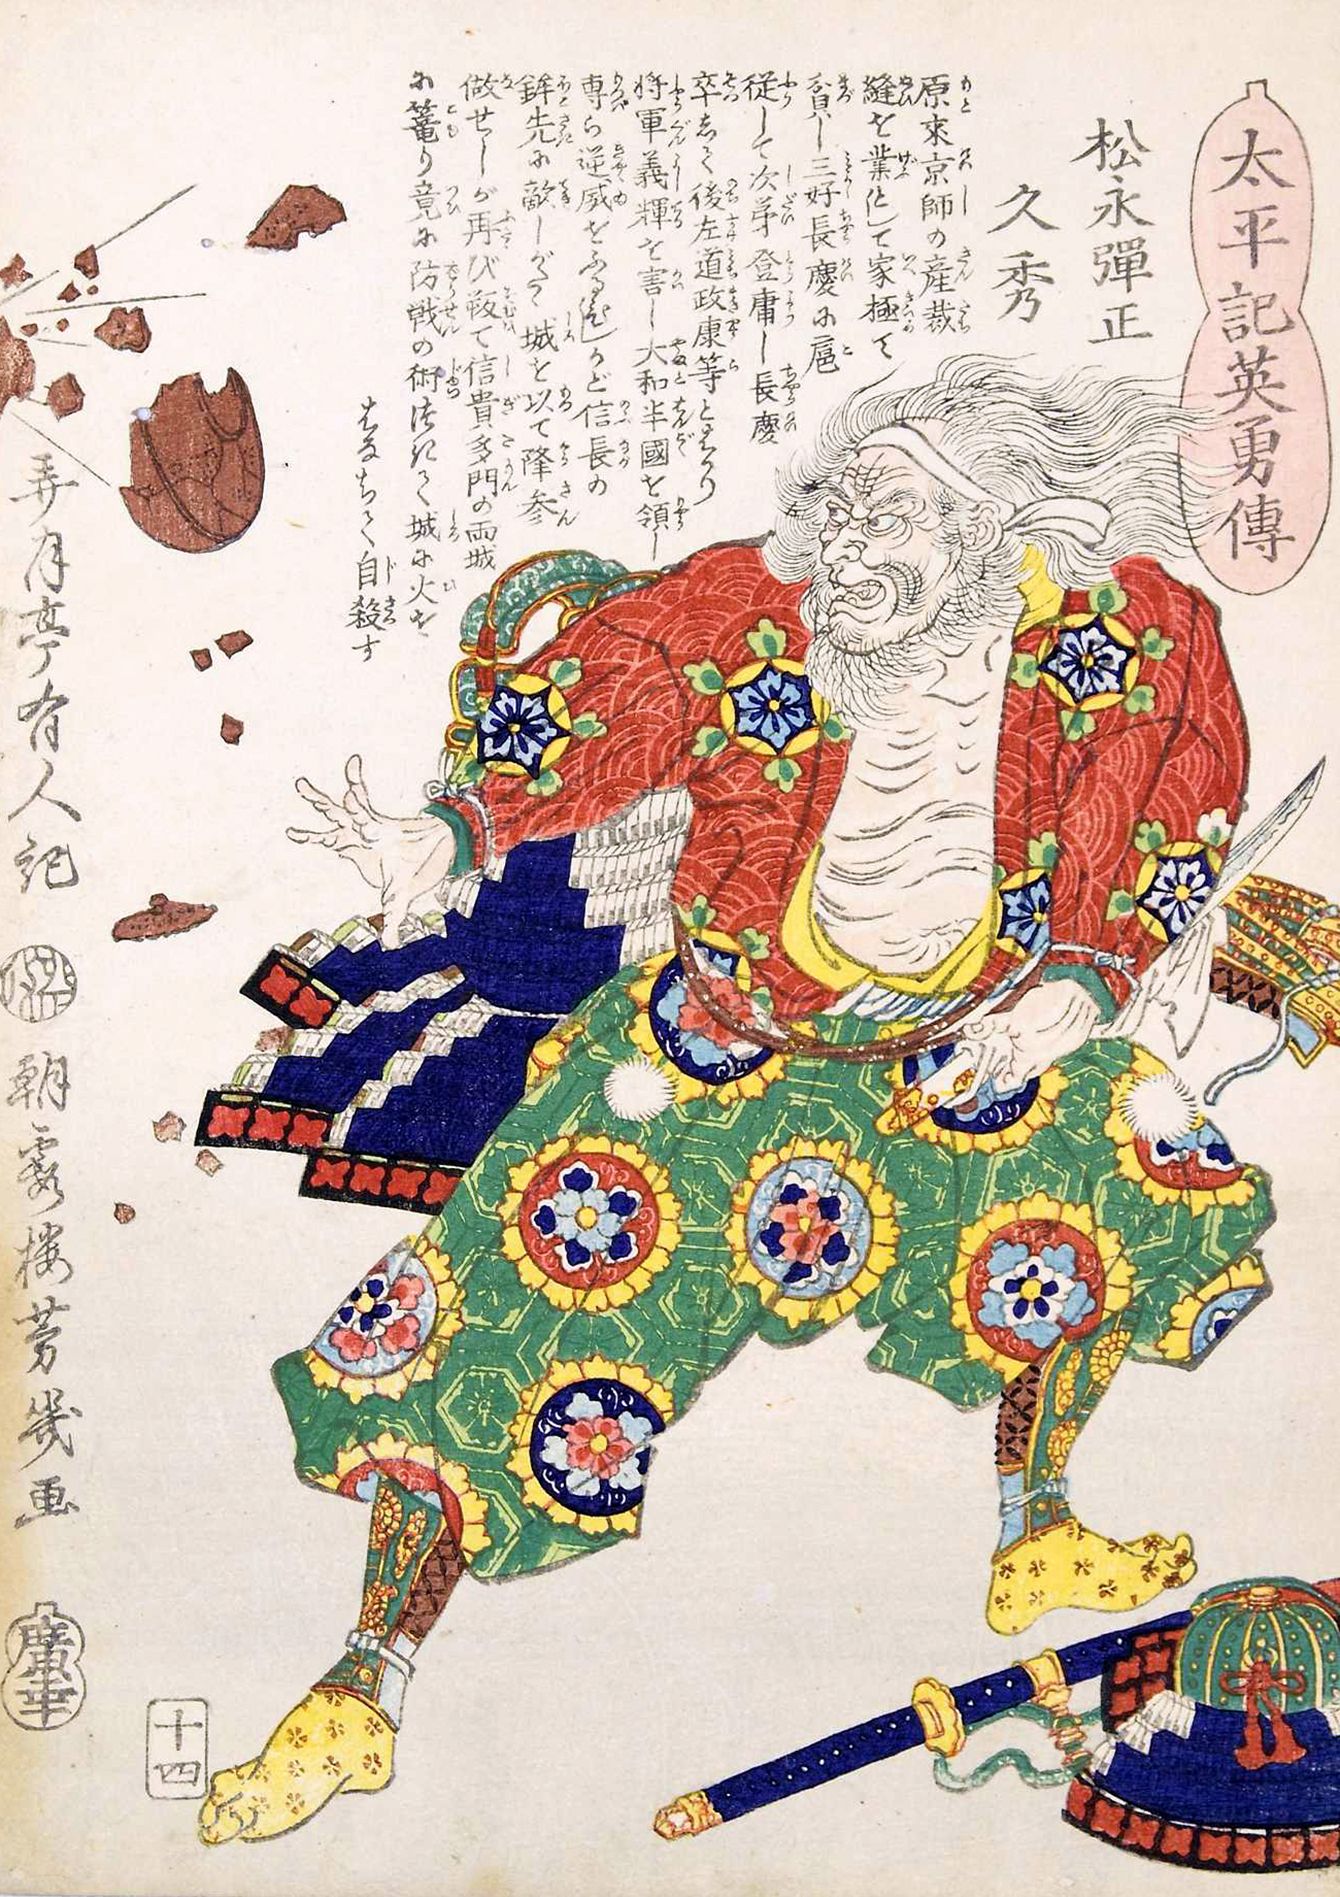 太平記英勇傳
松永彈正
久秀
原來京師の産裁
縫を業として家極て
貧し三好長慶に扈
從して次第登庸し長慶
卒して後左道政康等とはかり
将軍義輝を害し大和半國を領し
専ら逆威をふるひしかど信長の
鉾先に敵しがたく城を以て降参
做せしが再び叛て信貴多門の両城
に篭り竟に防戦の術つきて城に火を
はなちて自殺す
弄月亭有人記
朝霞楼芳幾画
廣幸
十四